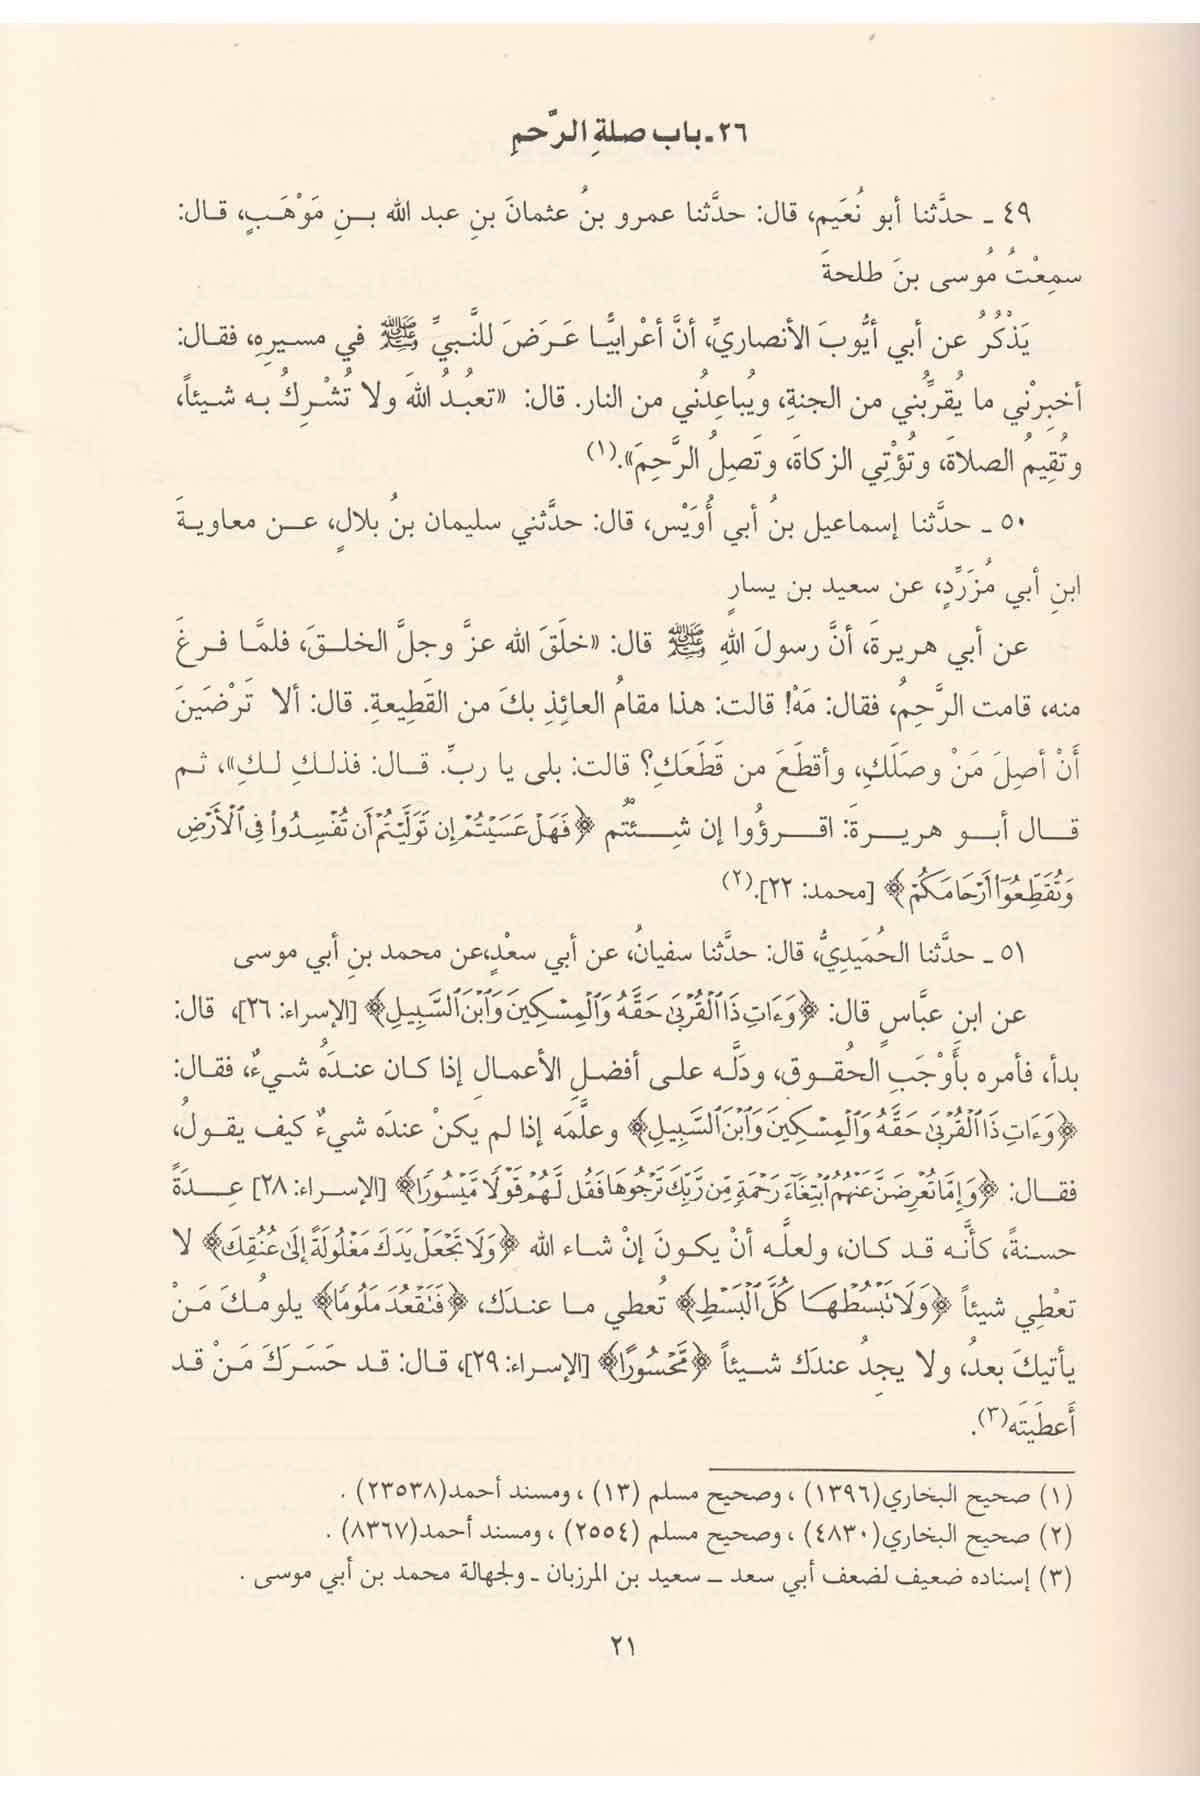 ٢٦ـ باب صلةِ الرَّحمِ
٤٩ ـ حدَّثنا أبو نُعَيم، قال: حدَّثنا عمرو بنُ عثمانَ بنِ عبد الله بـنِ مَوْهَـبٍ، قـال:
سمِعْتُ مُوسى بنَ طلحةَ
يَذْكُرُ عن أبي أيُّوبَ الأنصاريِّ، أنَّ أعْرابيًّـا عَـرَضَ للنَّبيِّ ﷺ في مسيرِهِ، فقـال:
أخبِرْني ما يُقرِّبُني من الجنةِ، ويُباعِدُني من النار. قال: «تعبُـدُ اللهَ ولا تُشْـرِكُ بـه شـيئاً،
وتُقِيمُ الصلاةَ، وتُؤْتِي الزكاةَ، وتَصِلُ الرَّحِمَ».(١)
٥٠ ـ حدَّثنا إسماعيل بنُ أبي أُوَيْس، قال: حدَّثني سليمان بنُ بلالٍ، عـن معاويـةَ
ابنِ أبي مُزَرِّدٍ، عن سعيد بن يسارٍ
عن أبي هريرةَ، أنَّ رسولَ اللهِ ﷺ قال: «خلَقَ الله عزَّ وجلَّ الخلـقَ، فلمَّـا فـرغَ
منه، قامت الرَّحِمُ، فقال: مَهْ! قالت: هذا مقامُ العائِذِ بكَ من القَطِيعةِ. قال: ألا تَرْضَينَ
أَنْ أصِلَ مَنْ وصَلَكِ، وأقطَعَ من قَطَعَكِ؟ قالت: بلى يا ربِّ. قـال: فذلـكِ لـكِ»، ثـم
قـال أبـو هريـرةَ: اقـرؤُوا إن شِـئْتُم ﴿فَهَلْ عَسَيْتُمْ إِن تَوَلَّيْتُمْ أَن تُفْسِدُوا۟ فِى ٱلْأَرْضِ
وَتُقَطِّعُوٓا۟ أَرْحَامَكُمْ﴾ [محمد: ٢٢].(٢)
٥١ ـ حدَّثنا الحُمَيدِيُّ، قال: حدَّثنا سفيانُ، عن أبي سعْدٍ،عن محمد بنِ أبي موسى
عن ابنِ عبَّاسٍ قال: ﴿وَءَاتِ ذَا ٱلْقُرْبَىٰ حَقَّهُۥ وَٱلْمِسْكِينَ وَٱبْنَ ٱلسَّبِيلِ﴾ [الإسراء: ٢٦]، قال:
بدأ، فأمره بأَوْجَبِ الحُقـوق، ودَلَّـه علـى أفضـلِ الأعمـالِ إذا كـان عنـدَهُ شـيءٌ، فقـال:
﴿وَءَاتِ ذَا ٱلْقُرْبَىٰ حَقَّهُۥ وَٱلْمِسْكِينَ وَٱبْنَ ٱلسَّبِيلِ﴾ وعلَّمَه إذا لم يكنْ عندَه شيءٌ كيف يقولُ،
فقـال: ﴿وَإِمَّا تُعْرِضَنَّ عَنْهُمُ ٱبْتِغَآءَ رَحْمَةٍ مِّن رَّبِّكَ تَرْجُوهَا فَقُل لَّهُمْ قَوْلًا مَّيْسُورًا﴾ [الإسـراء: ٢٨] عِـدَةً
حسنةً، كأنَّه قد كان، ولعلَّه أنْ يكونَ إنْ شاء الله ﴿وَلَا تَجْعَلْ يَدَكَ مَغْلُولَةً إِلَىٰ عُنُقِكَ﴾ لا
تعْطِي شيئاً ﴿وَلَا تَبْسُطْهَـا كُلَّ ٱلْبَسْطِ﴾ تُعطي مـا عنـدَك، ﴿فَتَقْعُدَ مَلُومًا﴾ يلومُـكَ مَـنْ
يأتيكَ بعدُ، ولا يجدُ عندَك شـيئاً ﴿مَّحْسُورًا﴾ [الإسراء: ٢٩]، قال: قد حَسَرَكَ مَـنْ قد
أَعطَيتَه(٣).
(١) صحيح البخاري(١٣٩٦) ، وصحيح مسلم (١٣) ، ومسند أحمد(٢٣٥٣٨) .
(٢) صحيح البخاري(٤٨٣٠) ، وصحيح مسلم (٢٥٥٤) ، ومسند أحمد(٨٣٦٧) .
(٣) إسناده ضعيف لضعف أبي سعد ــ سعيد بن المرزبان ـ ولجهالة محمد بن أبي موسى .
٢١